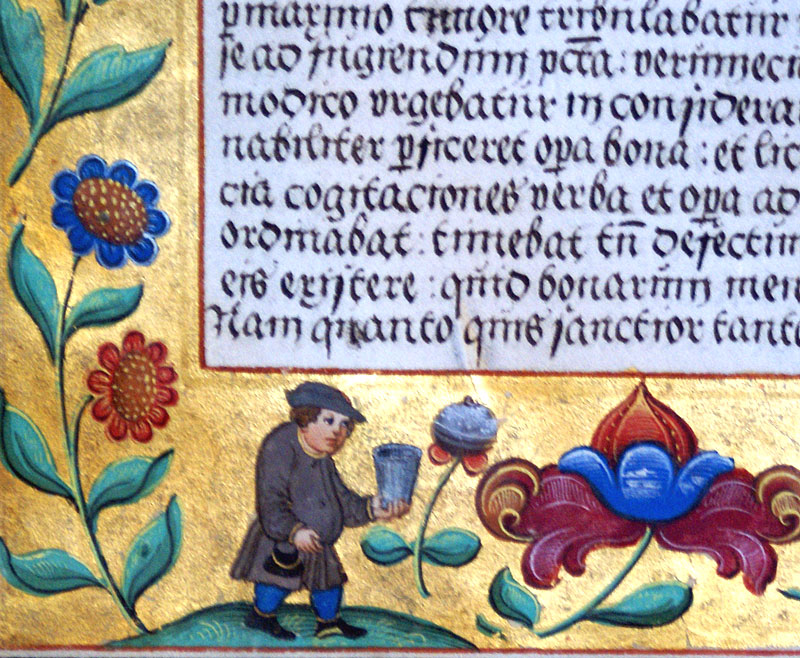 ꝑmaximo timore tribulabatur
se ad jngrendum pctā : verumeci
modico vrgebatur in considera
nabiliter ꝑficeret oꝑa bona : et lic
cia cogitaciones verba et oꝑa ad
ordinabat : timebat tn̄ defectum
eis existere : quid bonarum men
Nam quanto quis sanctior tant